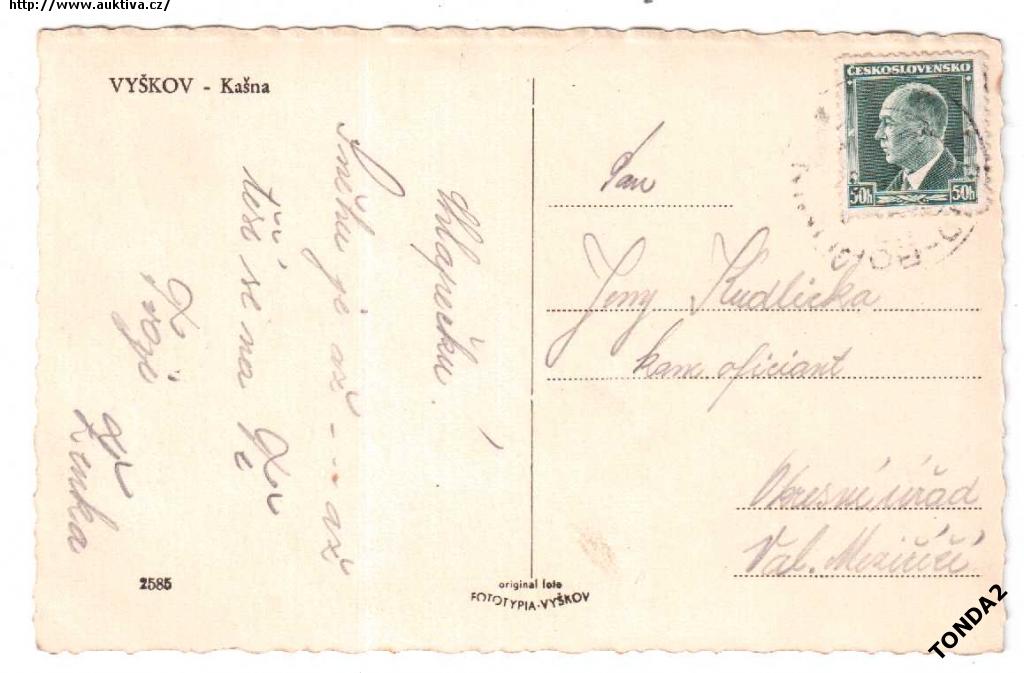 http://www.auktiva.cz/
VYŠKOV - Kašna
Chlapečku!
Smíchu je až -- až
těší se na
Tvoji
Zdenka
2585
original foto
FOTOTYPIA-VYŠKOV
ČESKOSLOVENSKO
50h 50h
Pan
Jeny Kudlička
kanc oficiant
Okresní úřad
Val. Meziříčí
TONDA2